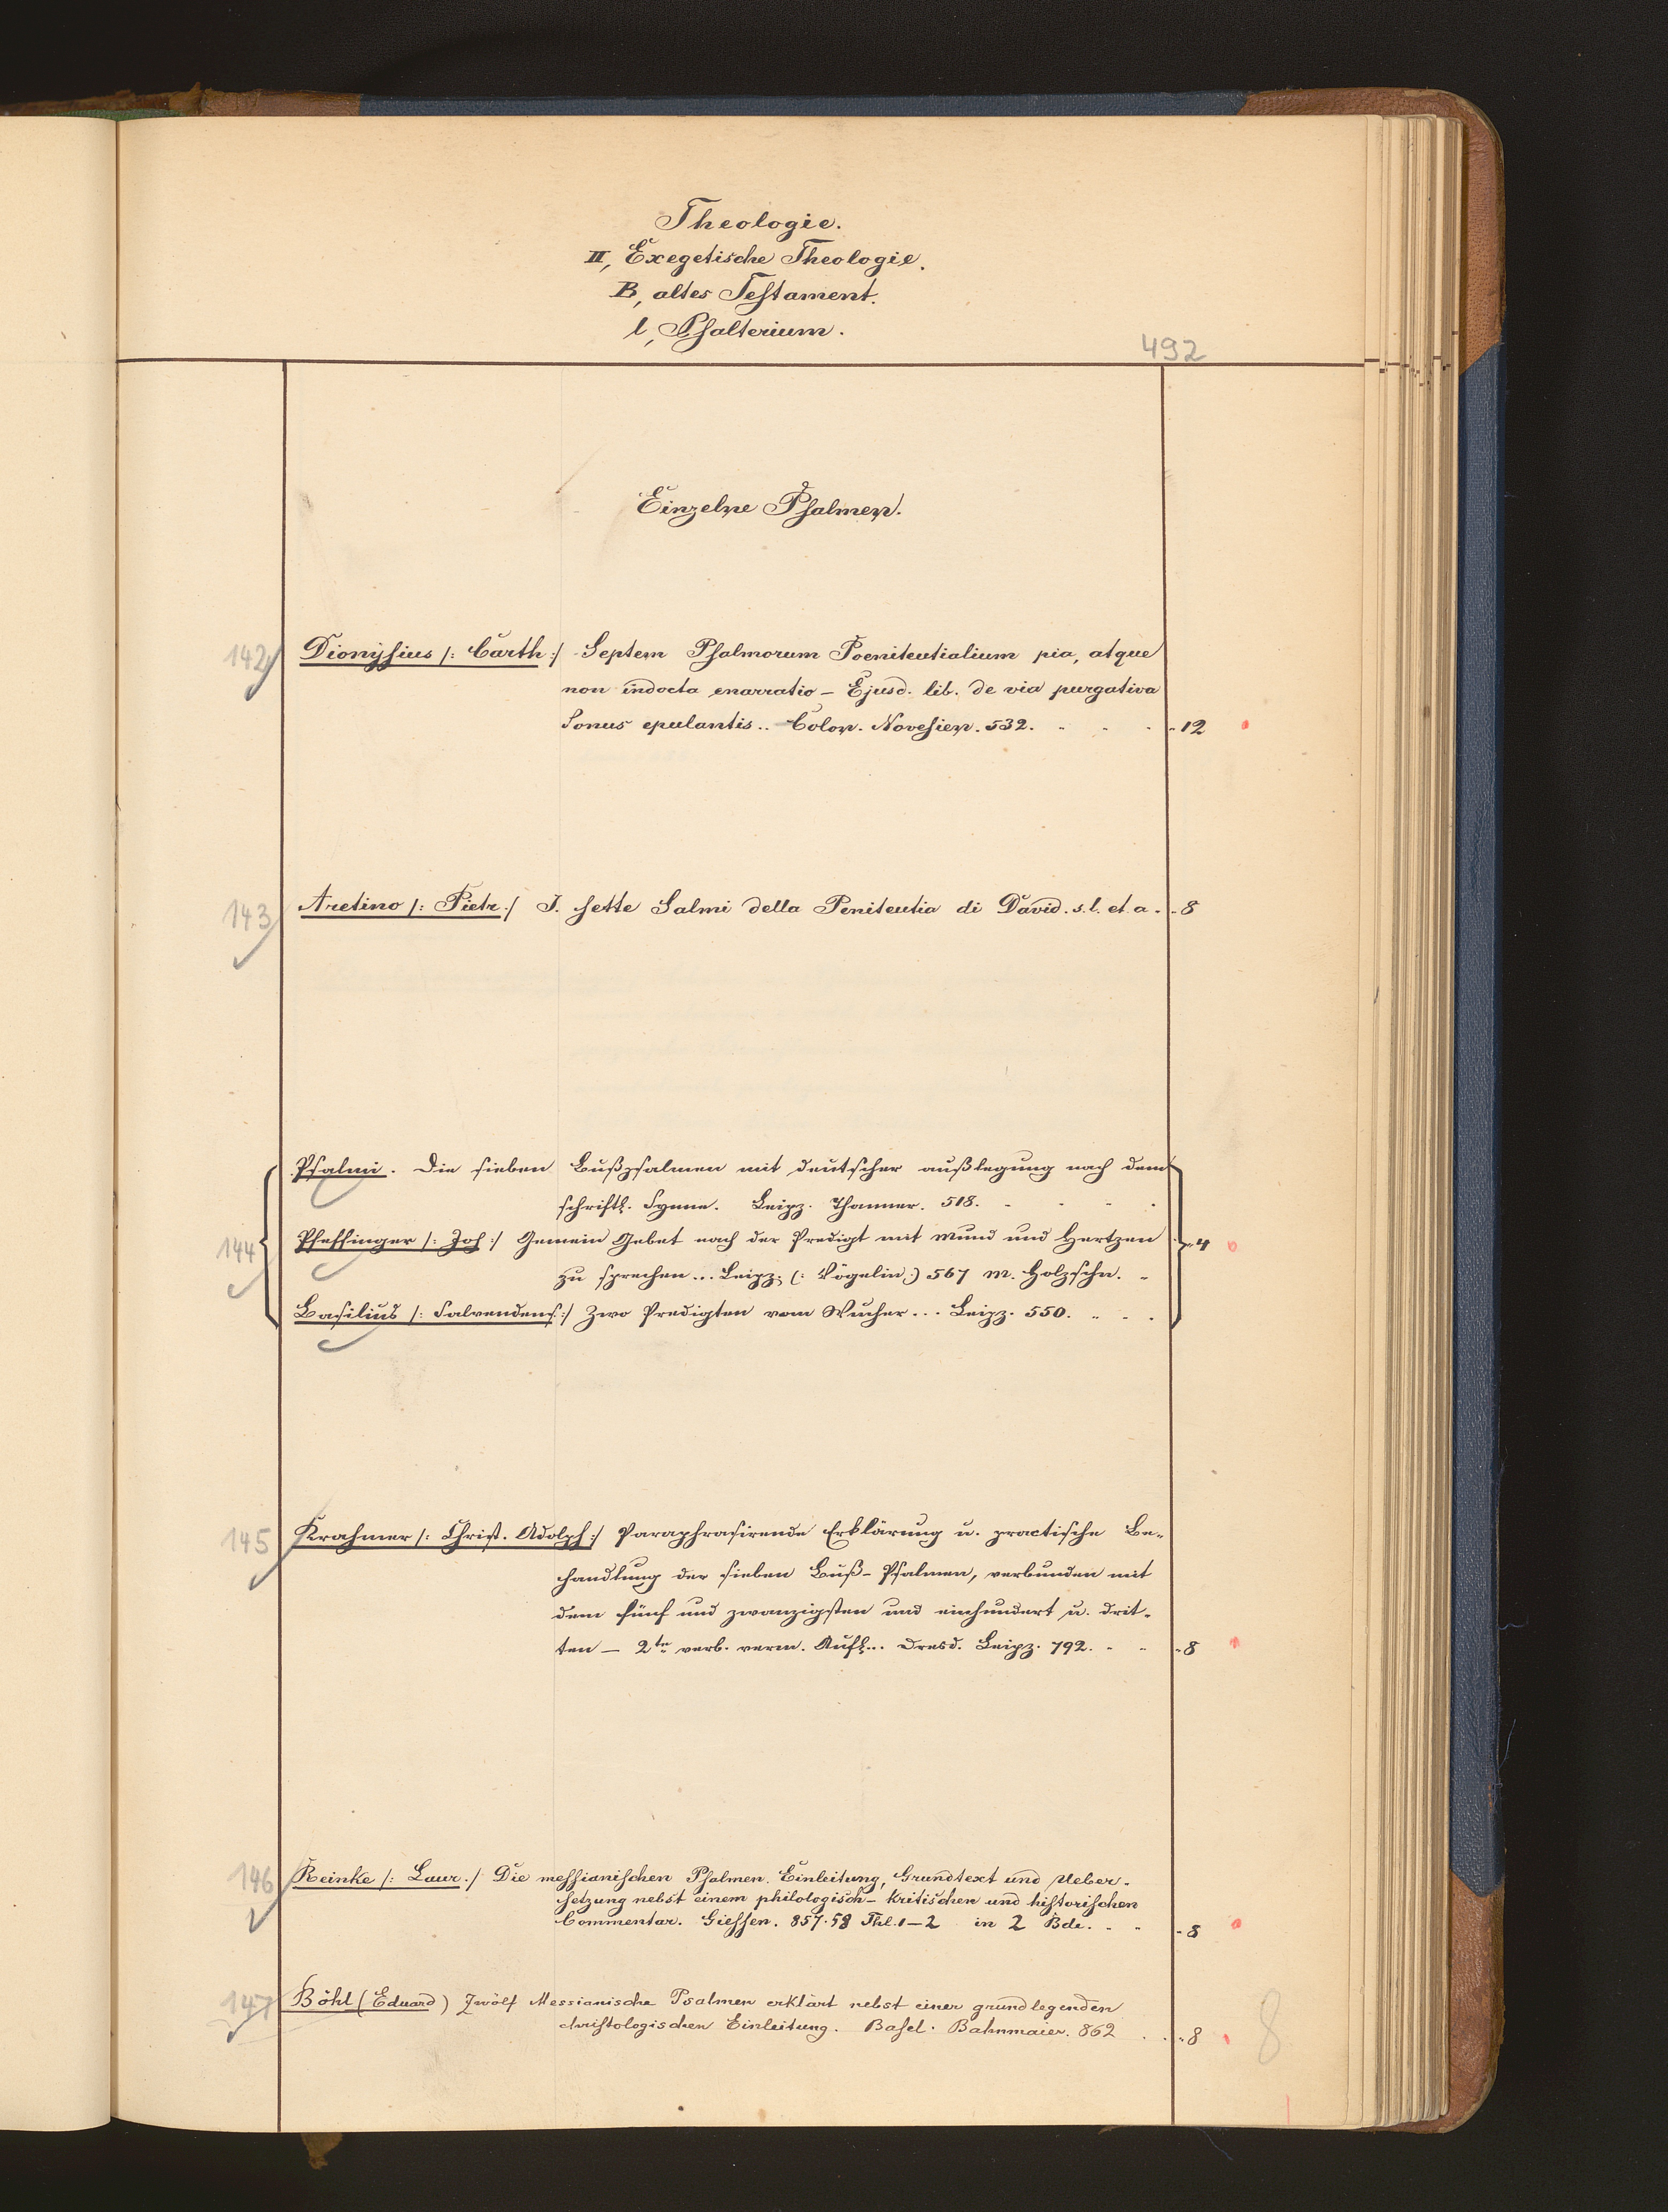 Theologie.
II, Exegetische Theologie.
B, altes Testament.
l, Psalterium.
492
Einzelne Psalmen.
142 Dionysius /: Carth :/ Septem Psalmorum Poenitentialium pia, atque
non indocta enarratio – Ejusd. lib. de via purgativa
Sonus epulantis.. Colon. Novesien. 532. 12
143 Aretino /: Pietr :/ I. sette Salmi della Penitentia di David. s. l. et a. 8
Psalmi. Die sieben Bußpsalmen mit deutscher außlegung nach dem
schriftl. Synne. Leipz. Thanner. 518.
144 Pfeffinger /: Joh :/ Gemein Gebet nach der Predigt mit Mund und Hertzen 4
zu sprechen... Leipz. (: Vögelin :) 567 m. Holzschn.
Basilius /: Salvendens :/ Zwo Predigten vom Wucher... Leipz. 550.
145 Krahmer /: Christ. Adolph :/ Paraphrasirende Erklärung u. practische Be-
handlung der sieben Buß-Psalmen, verbunden mit
dem fünf und zwanzigsten und einhundert u. drit-
ten – 2te verb. verm. Aufl... Dresd. Leipz. 792. 8
146 Reinke /: Laur :/ Die messianischen Psalmen. Einleitung, Grundtext und Ueber-
setzung nebst einem philologisch-kritischen und historischen
Commentar. Giessen. 857.58 Thl. 1–2 in 2 Bde. 8
147 Böhl (Eduard) Zwölf Messianische Psalmen erklärt nebst einer grundlegenden
christologischen Einleitung. Basel. Bahnmaier. 862 8
8